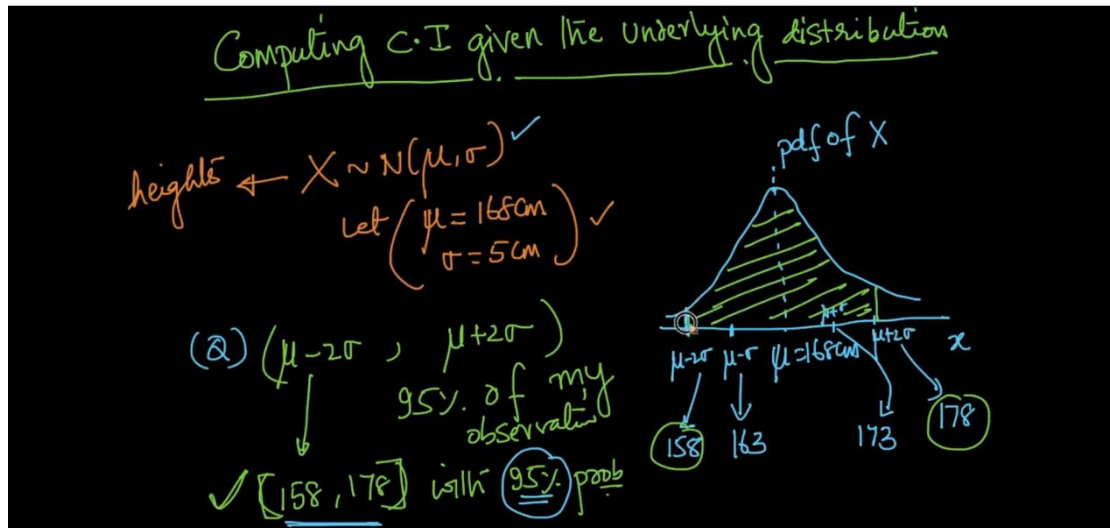 Computing C.I given the underlying distribution
heights ← X ~ N(μ, σ) ✓
Let (μ = 168cm
σ = 5cm) ✓
(Q) (μ-2σ , μ+2σ)
95% of my
observation
✓ [158, 178] with 95% prob
pdf of X
μ-2σ μ-σ μ=168cm μ+σ μ+2σ x
158 163 173 178